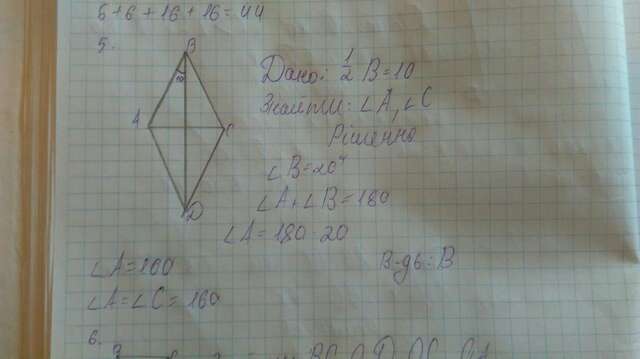 6+6+16+16=44
5.
B
A
C
D
Дано: 1/2 B=10
Знайти: ∠A, ∠C
Рішення
∠B=20°
∠A+∠B=180
∠A=180-20
∠A=160
∠A=∠C=160
6.